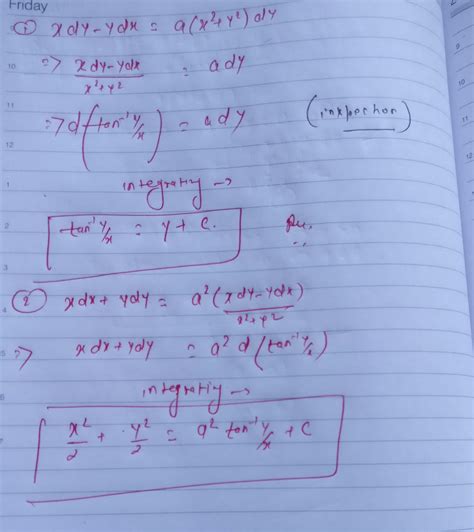 Friday
① xdy-ydx = a(x²+y²)dy
10 => xdy-ydx / x²+y² = ady
11 => d(tan⁻¹ y/x) = ady (inspection)
12
1 integrating →
2 tan⁻¹ y/x = y + c.
3
4 ② xdx + ydy = a² (xdy-ydx) / x²+y²
5 => xdx + ydy = a² d (tan⁻¹ y/x)
6 integrating →
7 x²/2 + y²/2 = a² tan⁻¹ y/x + c